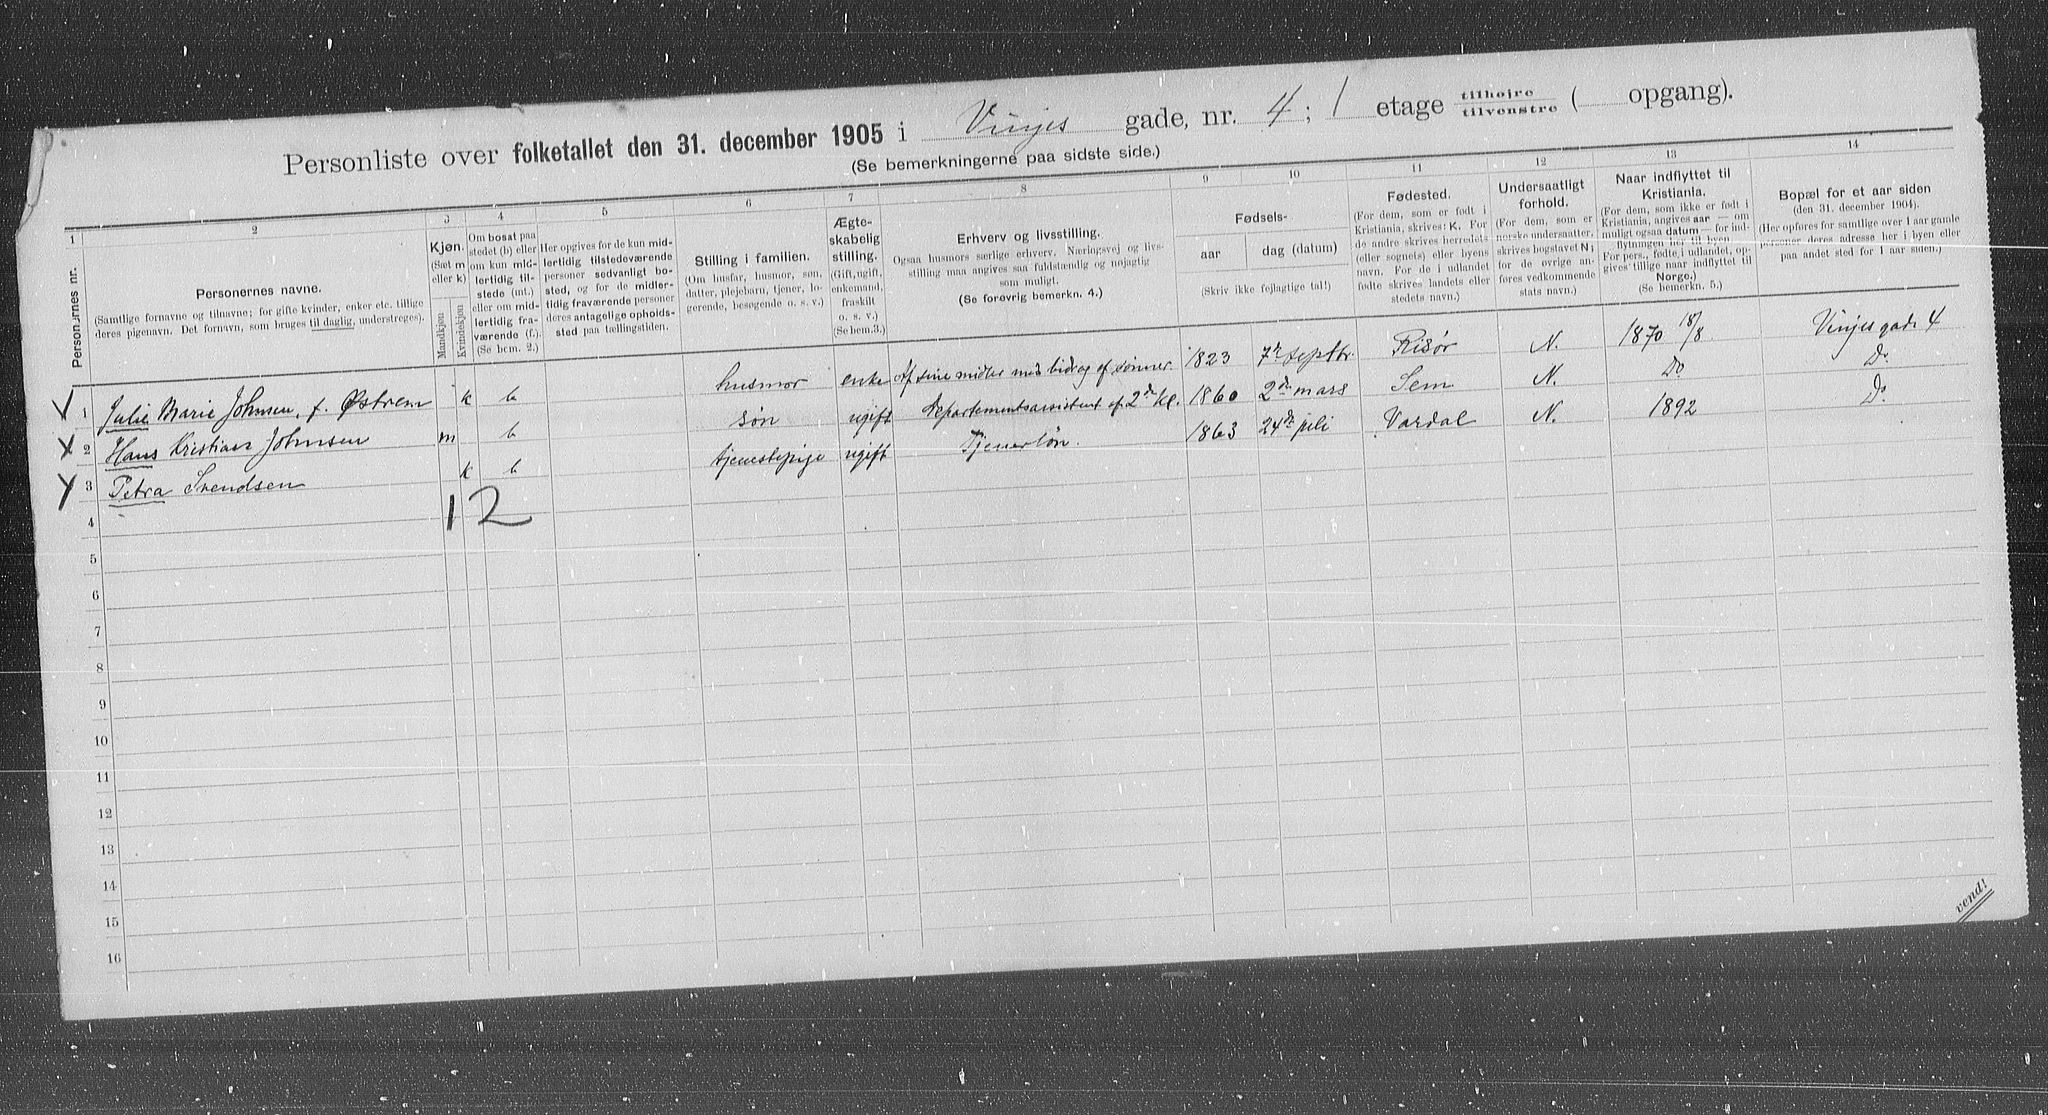 Personliste over folketallet den 31. december 1905 i Vinjes gade, nr. 4; 1 etage tilhøire tilvenstre ( opgang).
(Se bemerkningerne paa sidste side.)
1 2 3 4 5 6 7 8 9 10 11 12 13 14
Personernes nr.
Personernes navne.
(Samtlige fornavne og tilnavne; for gifte kvinder, enker etc. tillige
deres pigenavn. Det fornavn, som bruges til daglig, understreges).
Kjøn.
(Sæt m
eller k)
Mandkjøn
Kvindekjøn
Om bosat paa
stedet (b) eller
om kun mid-
lertidig til-
stede (mt.)
eller om mid-
lertidig fra-
værende (f.).
(Se bem. 2.)
Her opgives for de kun mid-
lertidig tilstedeværende
personer sedvanligt bo-
sted, og for de midler-
tidig fraværende personer
deres antagelige opholds-
sted paa tællingstiden.
Stilling i familien.
(Om husfar, husmor, søn,
datter, plejebarn, tjener, lo-
gerende, besøgende o. s. v.)
Ægte-
skabelig
stilling.
(Gift, ugift,
enkemand,
fraskilt
o. s. v.)
(Se bem. 3.)
Erhverv og livsstilling.
Ogsaa husmors særlige erhverv. Næringsvej og livs-
stilling maa angives saa fuldstændig og nøjagtig
som muligt.
(Se forøvrig bemerkn. 4.)
Fødsels-
aar
dag (datum)
(Skriv ikke fejlagtige tal!)
Fødested.
(For dem, som er født i
Kristiania, skrives: K. For
de andre skrives herredets
(eller sognets) eller byens
navn. For de i udlandet
fødte skrives landets eller
stedets navn.)
Undersaatligt
forhold.
(For dem, som er
norske undersaatter,
skrives bogstavet N;
for de øvrige an-
føres vedkommende
stats navn.)
Naar indflyttet til
Kristiania.
(For dem, som ikke er født i
Kristiania, angives aar — om
muligt ogsaa datum — for ind-
flytningen her til byen.
For pers., fødte i udlandet, op-
gives tillige naar indflyttet til
Norge.)
(Se bemerkn. 5.)
Bopæl for et aar siden
(den 31. december 1904).
(Her opføres for samtlige over 1 aar gamle
personer deres adresse her i byen eller
paa andet sted for 1 aar siden.)
1 Julie Marie Johnsen, f. Østrem k b husmor enke Af sine midler med bidrag af sønner. 1823 7de septbr. Risør N. 1870 18/8. Vinjes gade 4
2 Hans Kristian Johnsen m b søn ugift Departementsassistent af 2den kl. 1860 2de mars Sem N. Do Do.
3 Petra Svendsen k b tjenestepige ugift Tjenerløn. 1863 24de juli Vardal N. 1892 Do.
4 1 2
5
6
7
8
9
10
11
12
13
14
15
16
vend!